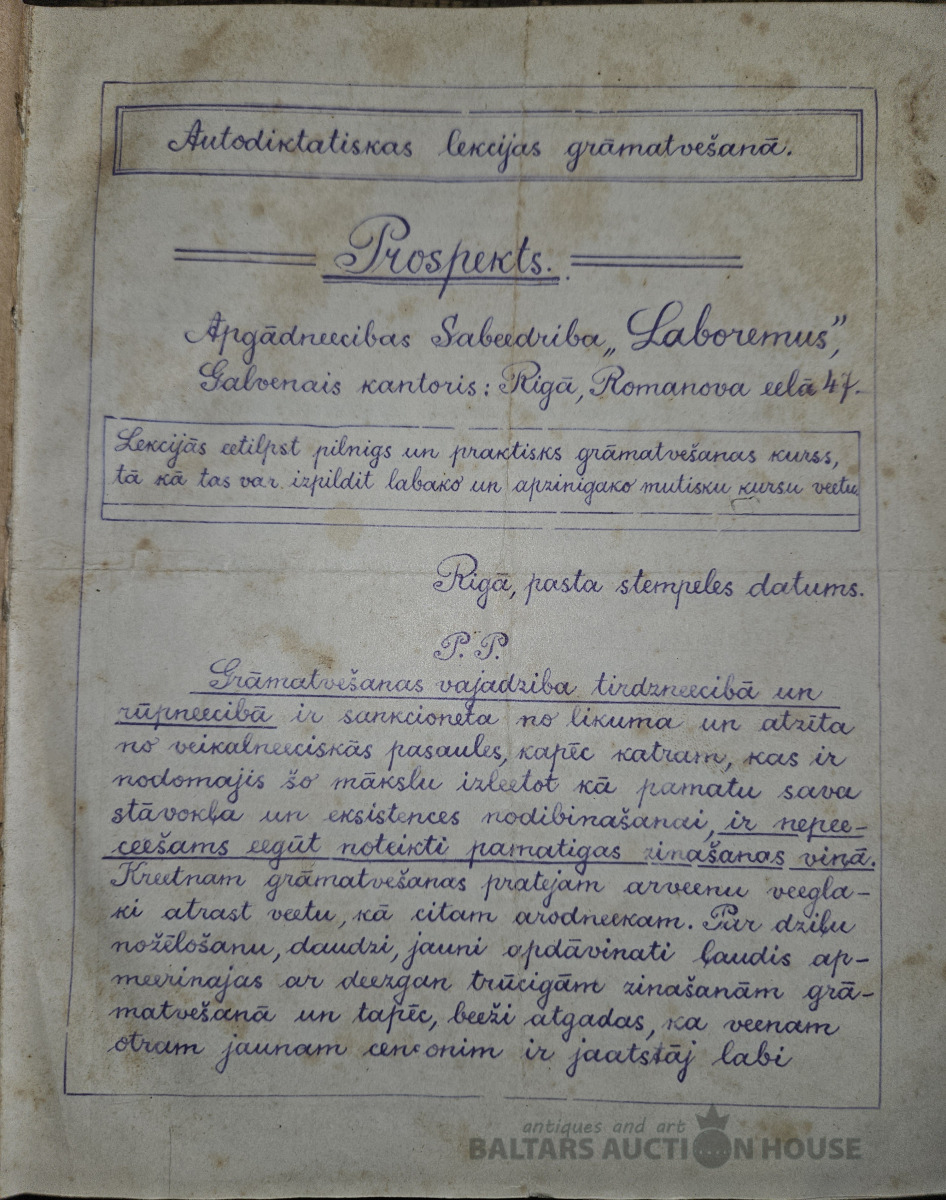 Autodiktatiskas lekcijas grāmatvešanā.
Prospekts.
Apgādneecibas Sabeedriba „Laboremus”,
Galvenais kantoris: Rigā, Romanova eelā 47.
Lekcijās eetilpst pilnigs un praktisks grāmatvešanas kurss,
tā kā tas var izpildit labako un apzinigako mutisku kursu veetu
Rigā, pasta stempeles datums.
P. P.
Grāmatvešanas vajadziba tirdzneecibā un
rūpneecibā ir sankcioneta no likuma un atzīta
no veikalneeciskās pasaules, kapēc katram, kas ir
nodomajis šo mākslu izleetot kā pamatu sava
stāvokļa un eksistences nodibinašanai, ir nepee-
ceešams eegūt noteikti pamatigas zinašanas viņā.
Kreetnam grāmatvešanas pratejam arveenu veegla-
ki atrast veetu, kā citam arodneekam. Par dziļu
nožēlošanu, daudzi, jauni apdāvinati ļaudis ap-
meerinajas ar deezgan trūcigām zinašanām grā-
matvešanā un tapēc, beeži atgadas, ka veenam
otram jaunam censonim ir jaatstāj labi
antiques and art
BALTARS AUCTION HOUSE